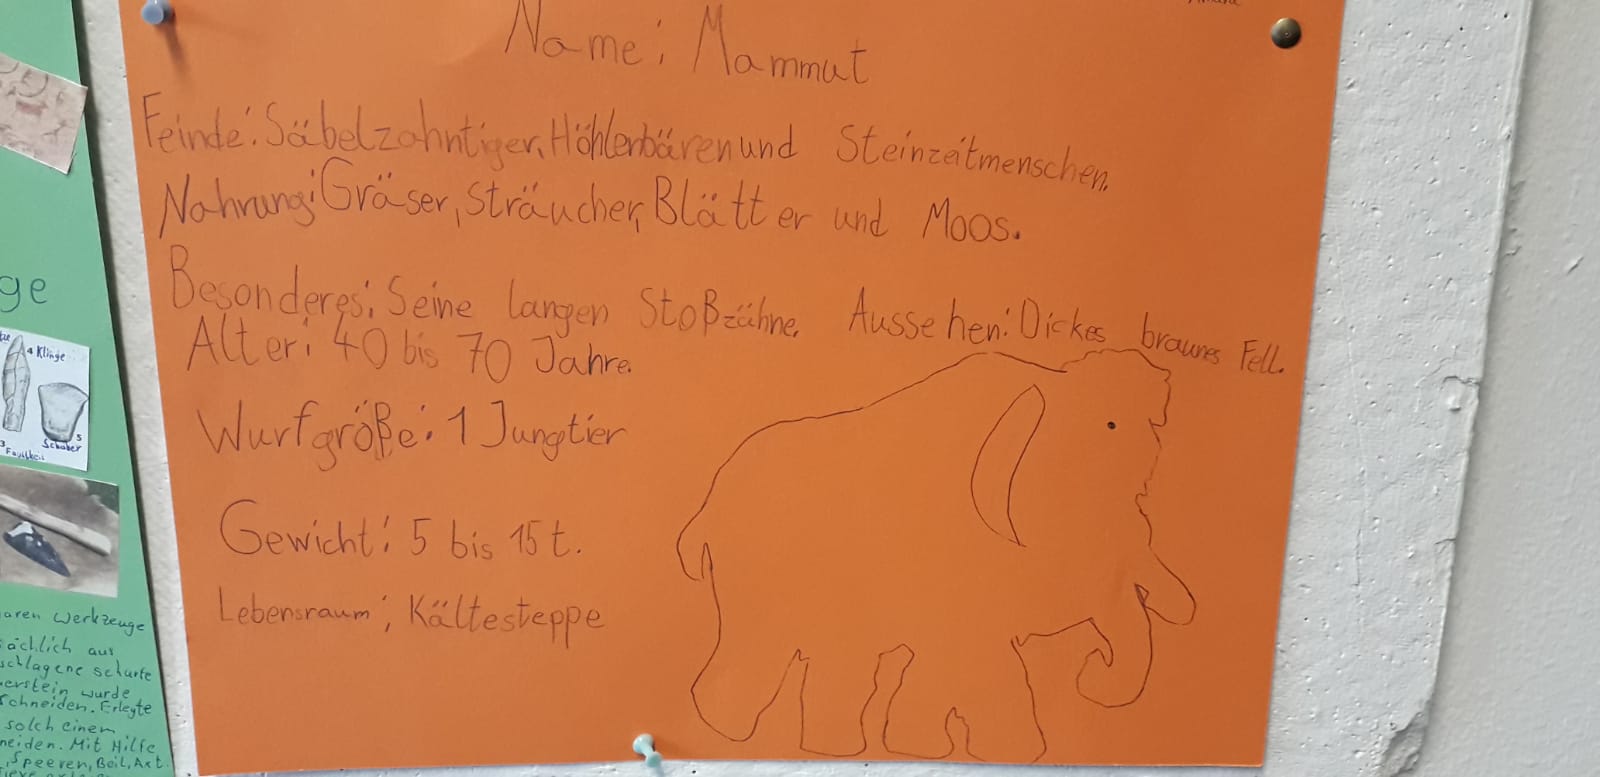 Name: Mammut
Feinde: Säbelzahntiger, Höhlenbären und Steinzeitmenschen.
Nahrung: Gräser, Sträucher, Blätter und Moos.
Besonderes: Seine langen Stoßzähne. Aussehen: Dickes braunes Fell.
Alter: 40 bis 70 Jahre.
Wurfgröße: 1 Jungtier
Gewicht: 5 bis 15 t.
Lebensraum: Kältesteppe
ge
4 Klinge
5
Schaber
3
Faustkeil
aren Werkzeuge
sächlich aus
schlagene scharfe
erstein wurde
schneiden. Erlegte
solch einem
neiden. Mit Hilfe
Speeren, Beil, Axt